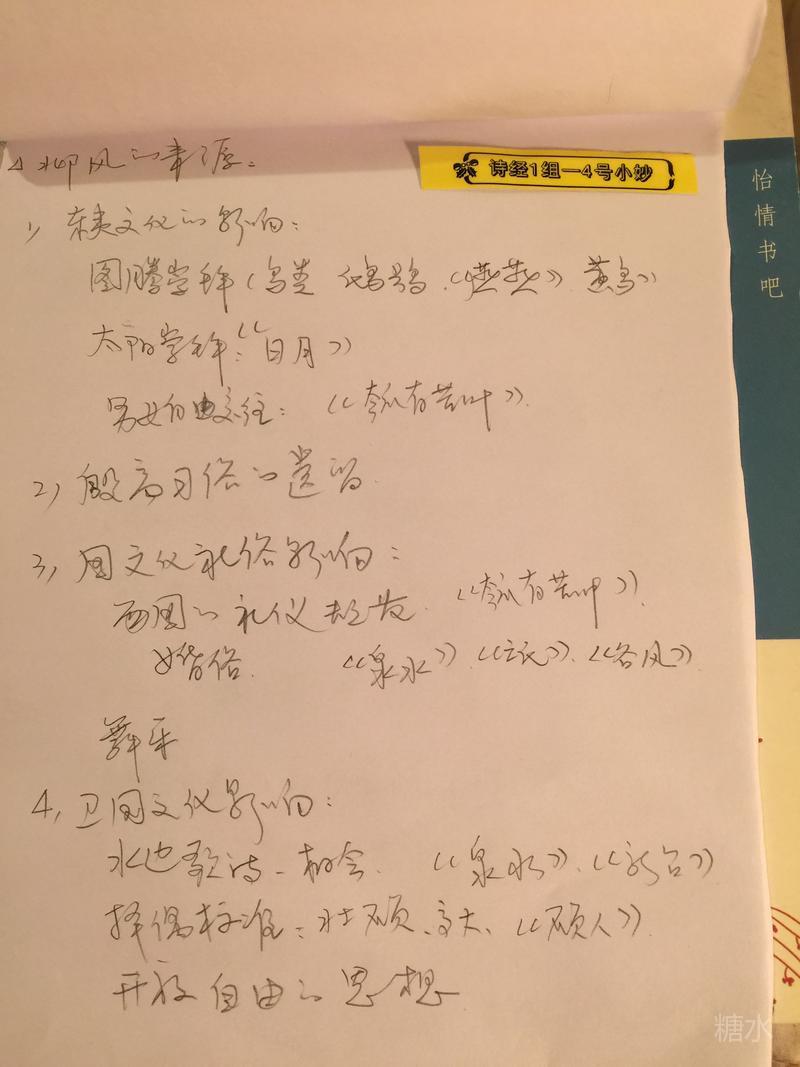 邶风的来源：
诗经1组—4号小妙
1) 东夷文化的影响：
图腾崇拜（鸟类 《燕燕》黄鸟》
太阳崇拜：《日月》
男女自由交往：《匏有苦叶》.
2) 殷商习俗的遗留
3) 周文化礼俗影响：
西周的礼仪 《匏有苦叶》.
婚俗. 《泉水》《谷风》
舞乐
4, 卫国文化影响：
水边歌诗—相会. 《泉水》、《新台》
择偶标准：壮硕、高大、《硕人》.
开放自由的思想
怡情书吧
糖水